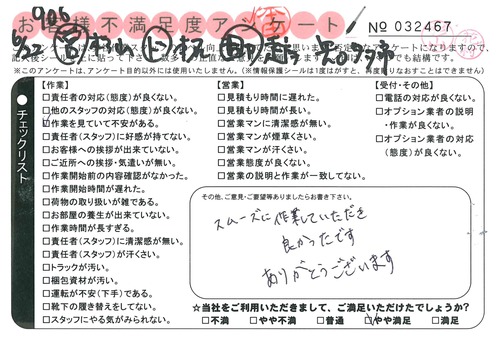 お客様不満足度アンケート
№ 032467
※このアンケートは、アンケート目的以外には使用いたしません。(※情報保護シールは1度はがすと、再度貼りなおすことはできません)
チェックリスト
【作業】
□責任者の対応(態度)が良くない。
□他のスタッフの対応(態度)が良くない。
□作業を見ていて不安がある。
□責任者(スタッフ)に好感が持てない。
□お客様への挨拶が出来ていない。
□ご近所への挨拶・気遣いが無い。
□作業開始前の内容確認がなかった。
□作業開始時間が遅れた。
□荷物の取り扱いが雑である。
□お部屋の養生が出来ていない。
□作業時間が長すぎる。
□責任者(スタッフ)に清潔感が無い。
□責任者(スタッフ)が汗くさい。
□トラックが汚い。
□梱包資材が汚い。
□運転が不安(下手)である。
□靴下の履き替えをしてない。
□スタッフにやる気がみられない。
【営業】
□見積もり時間に遅れた。
□見積もり時間が長い。
□営業マンに清潔感が無い。
□営業マンが煙草くさい。
□営業マンが汗くさい。
□営業態度が良くない。
□営業の説明と作業が一致してない。
【受付・その他】
□電話の対応が良くない。
□オプション業者の説明
・作業が良くない。
□オプション業者の対応
(態度)が良くない。
その他、ご意見・ご要望等ありましたらお書き下さい。
スムーズに作業していただき
良かったです
ありがとうございます
★当社をご利用いただきまして、ご満足いただけたでしょうか?
□不満 □やや不満 □普通 □やや満足 □満足